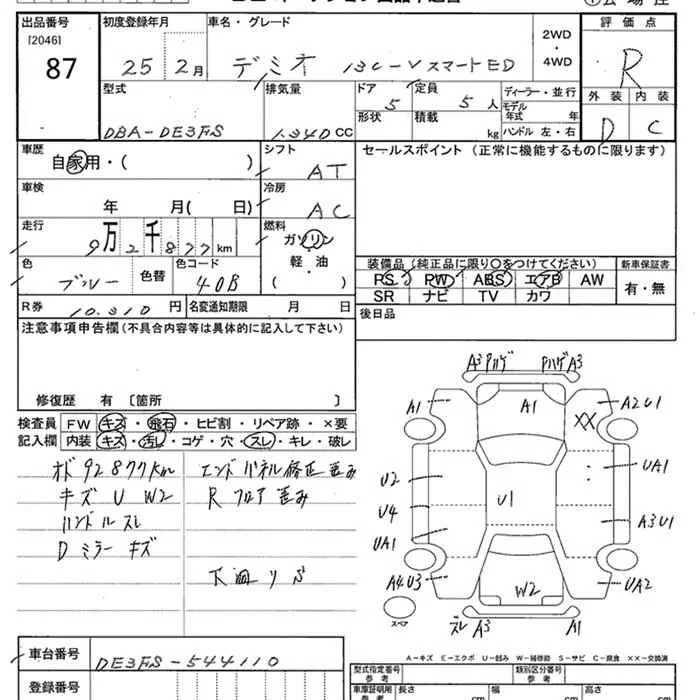 出品番号 [2046] 87
初度登録年月 25年 2月
車名・グレード デミオ 13C-V スマートED
2WD ・ 4WD
評価点 R
外装 D 内装 C
型式 DBA-DE3FS
排気量 1.340 CC
ドア 5 定員 5人
形状 積載 kg
ディーラー・並行
モデル年式 年
ハンドル 左・右
車歴 自家用・( )
シフト AT
セールスポイント (正常に機能するものに限ります)
車検 年 月( 日)
冷房 AC
走行 9万2千877km
燃料 ガソリン 軽・油 ( )
色 ブルー 色替 色コード 40B
装備品(純正品に限り○をつけてください) 新車保証書
PS PW ABS エアB AW 有・無
SR ナビ TV カワ
R券 10.310 円 名変通知期限 月 日
後日品
注意事項申告欄(不具合内容等は具体的に記入して下さい)
修復歴 有 〔箇所 〕
検査員 FW キズ・飛石・ヒビ割・リペア跡・×要
記入欄 内装 キズ・汚レ・コゲ・穴・スレ・キレ・破レ
オド 92877km
キズ U W2
ハンドルスレ
Dミラーキズ
エンドパネル修正歪み
Rフロア歪み
下廻りS
A3 Pハゲ PハゲA3
A1 A1 XX A2U1
U2 UA1
U4 U1 A3U1
UA1
A4U3 W2 UA2
スペア スレ A3 A1
A-キズ E-エクボ U-凹み W-補修跡 S-サビ C-腐食 ××-交換済
車台番号 DE3FS-544110
登録番号
型式指定番号 類別区分番号
車庫証明用参考 長さ cm 幅 cm 高さ cm